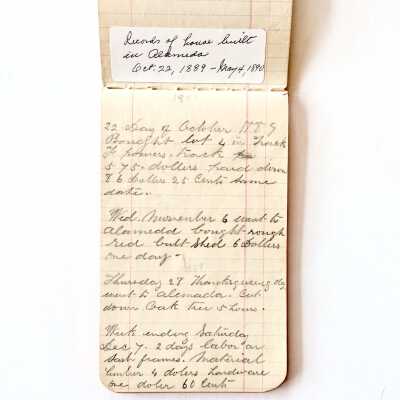 Records of house built
in Alameda
Oct. 22, 1889 - May 4, 1890
22 Day of October
Bought lot 4 in Track
track
575. dollers paid down
86 Dollers 25 Cents same
date.
Wed. November 6 went to
Alamedd bought rough
built shed 6 Dollers
one day -
Thursday 28 Thanksgiveng dy
went to Alemada. Cut
down Oak tree 5 hours.
Week ending Saturday
Dec 7. 2 days labor on
Sash frames. Material
lumber 4 dolers hardware
one doler 60 Cents